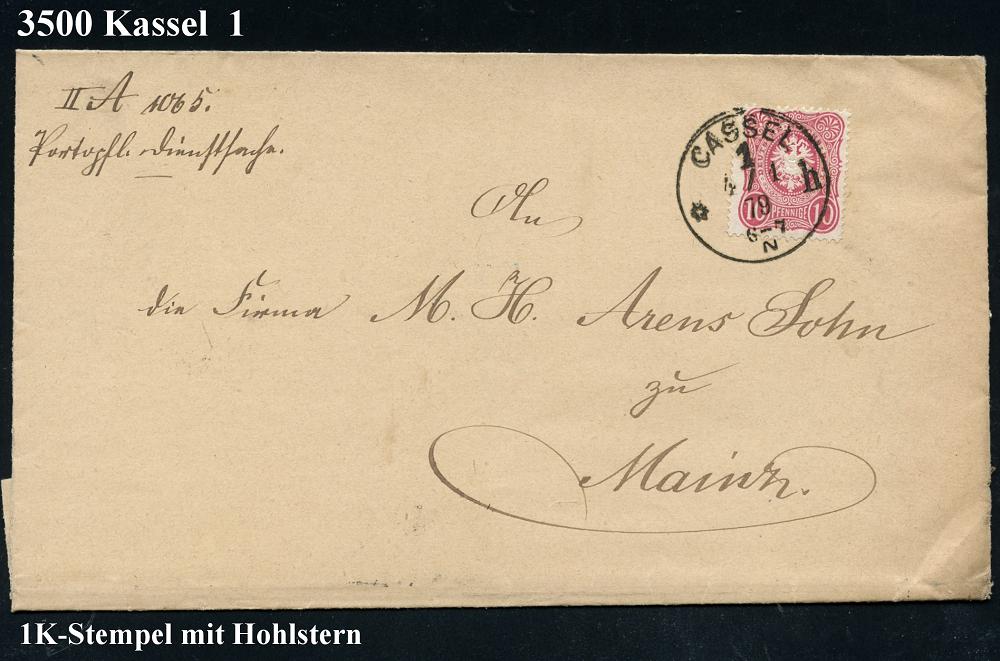 3500 Kassel 1
II A 1065.
Portopfl. Dienstsache.
CASSEL
1
4/1 h
79
6-7
N
10 PFENNIGE 10
An
die Firma M. H. Arens Sohn
zu
Mainz.
1K-Stempel mit Hohlstern